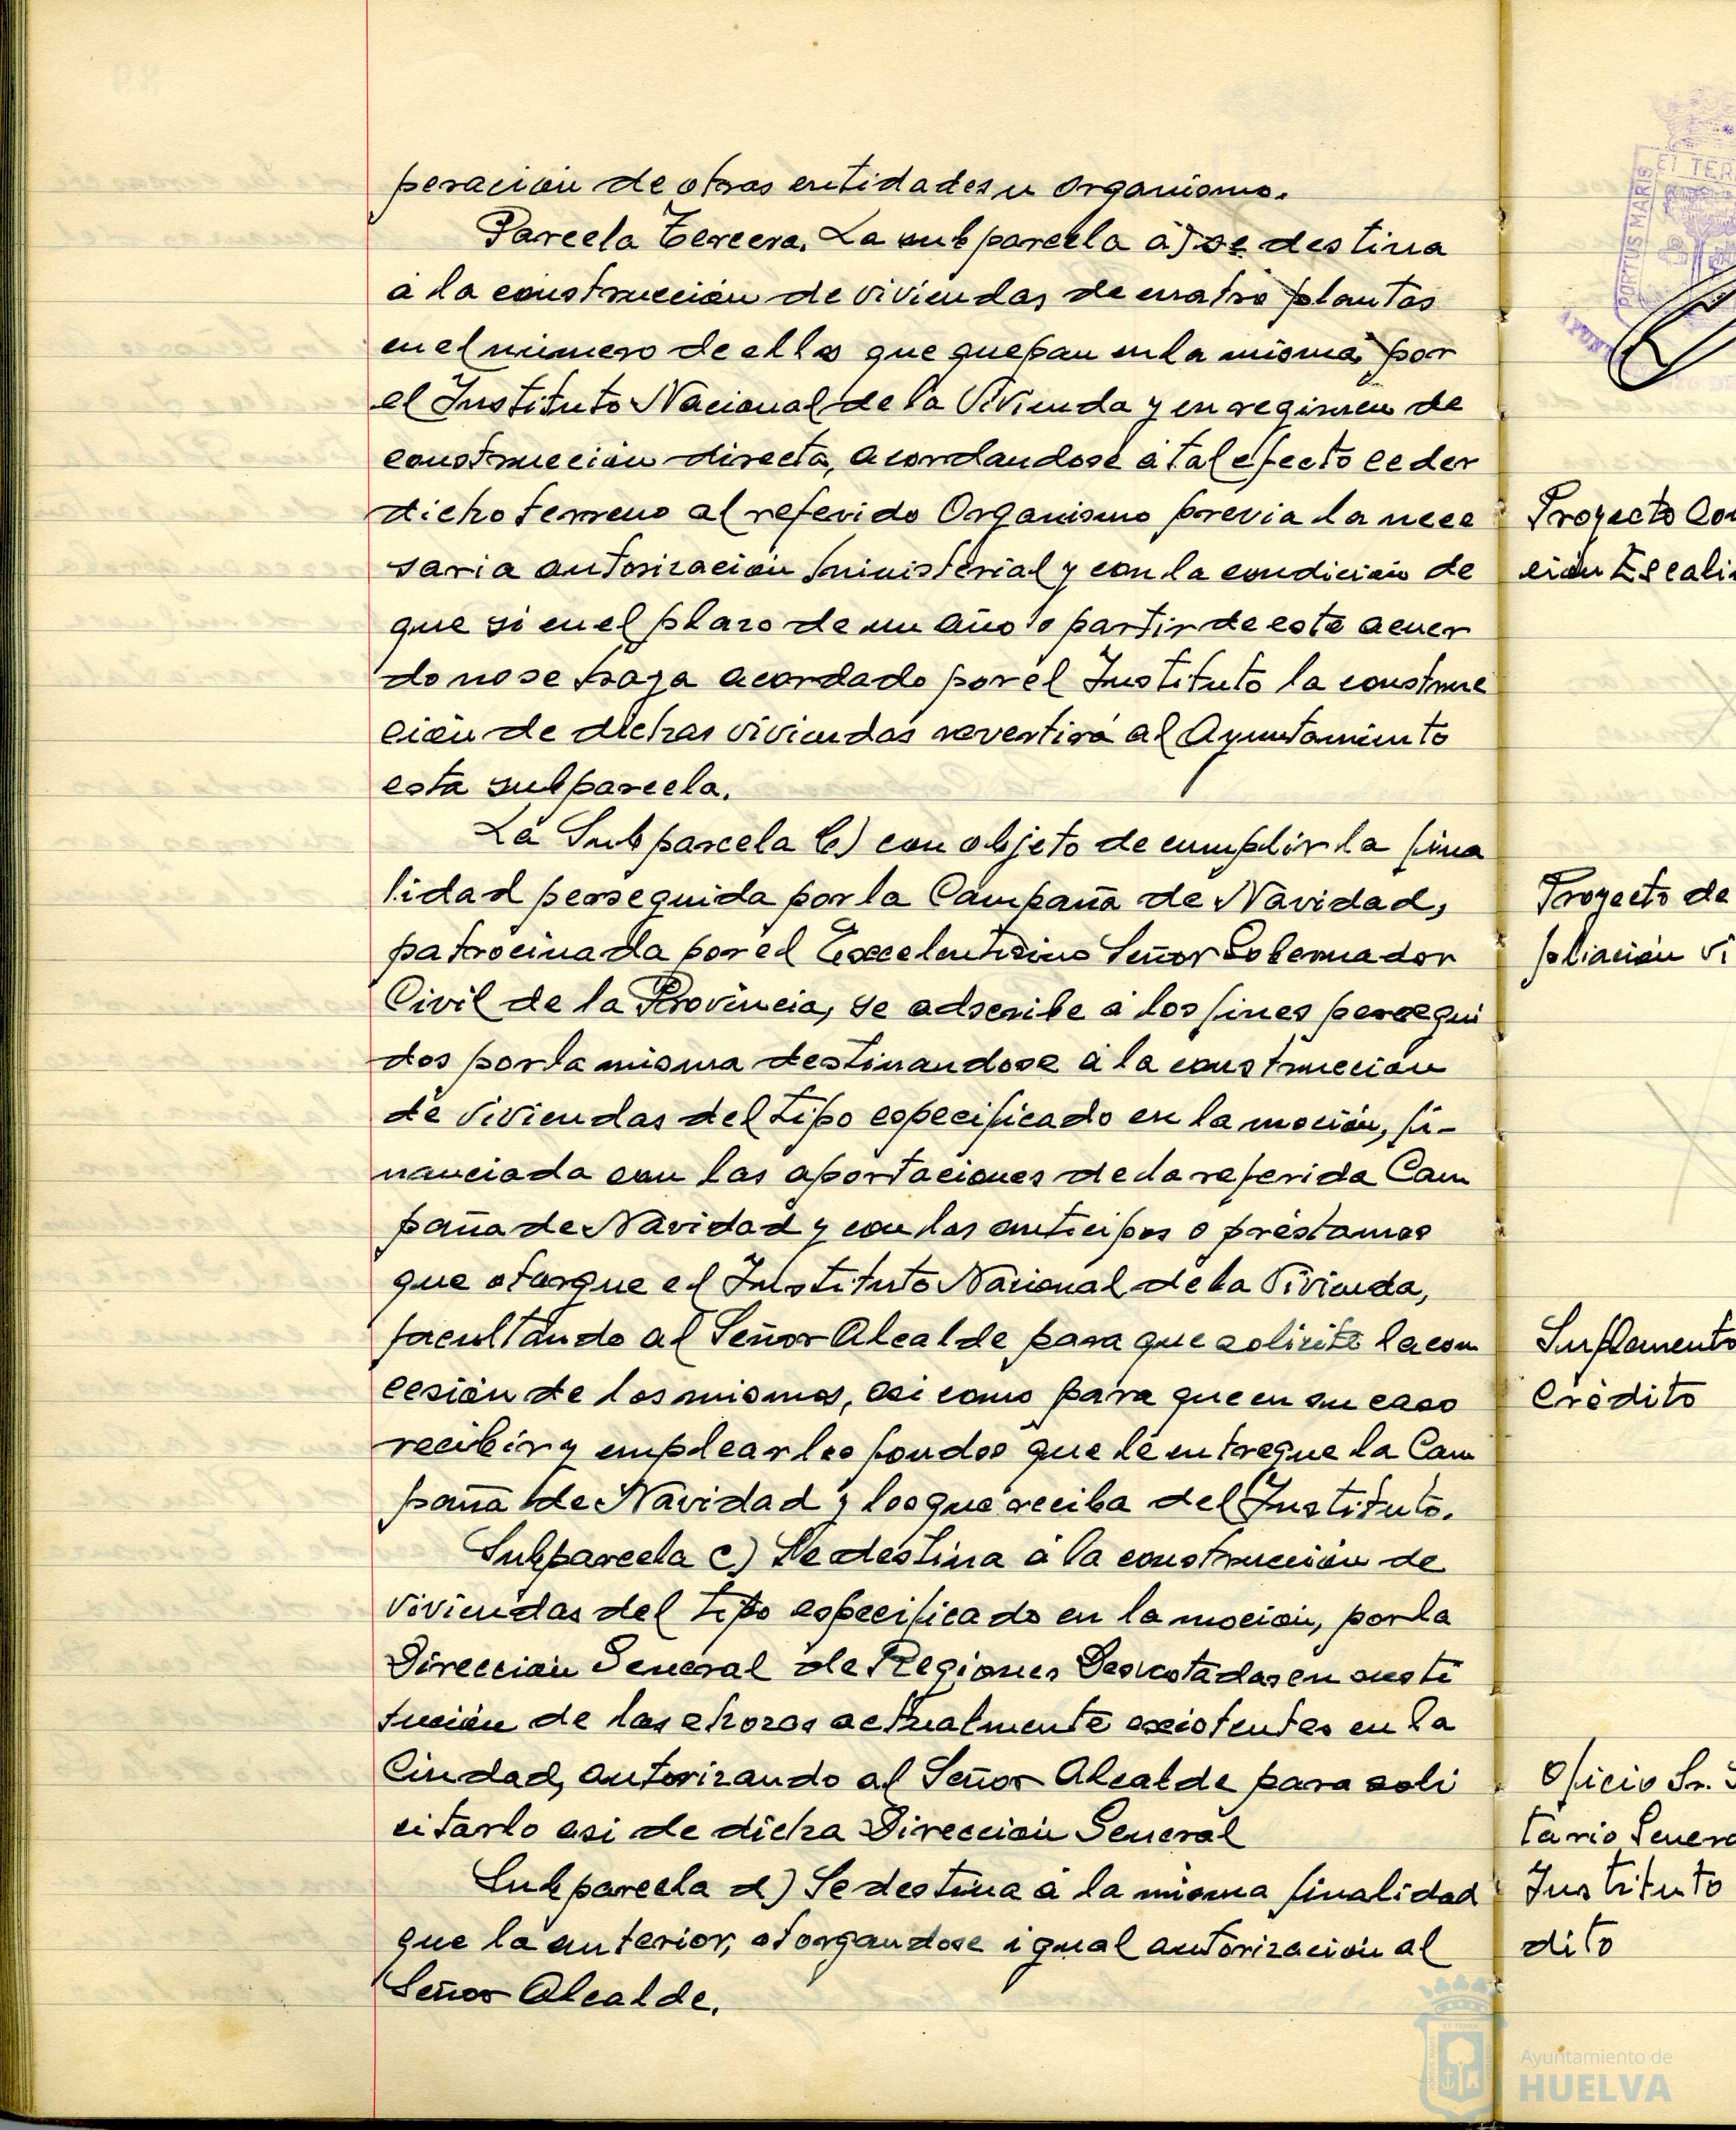 peración de otras entidades u organismo.
Parcela Tercera. La subparcela a) se destina
a la construcción de viviendas de cuatro plantas
en el número de ellas que quepan en la misma, por
el Instituto Nacional de la Vivienda y en regimen de
construcción directa, acordandose a tal efecto ceder
dicho terreno al referido Organismo previa la nece
saria autorización ministerial y con la condición de
que si en el plazo de un año a partir de este acuer
do no se haya acordado por el Instituto la construc
ción de dichas viviendas revertirá al Ayuntamiento
esta subparcela.
La Subparcela b) con objeto de cumplir la fina
lidad perseguida por la Campaña de Navidad,
patrocinada por el Excelentisimo Señor Gobernador
Civil de la Provincia, se adscribe a los fines persegui
dos por la misma destinandose a la construcción
de viviendas del tipo especificado en la moción, fi-
nanciada con las aportaciones de la referida Cam
paña de Navidad y con los anticipos o préstamos
que otorgue el Instituto Nacional de la Vivienda,
facultando al Señor Alcalde para que solicite la con
cesión de los mismos, asi como para que en su caso
recibir y emplear los fondos que le entregue la Cam
paña de Navidad y los que reciba del Instituto.
Subparcela c) Se destina a la construcción de
viviendas del tipo especificado en la moción, por la
Dirección General de Regiones Devastadas en susti
tución de las chozas actualmente existentes en la
Ciudad, autorizando al Señor Alcalde para soli
citarlo asi de dicha Dirección General
Subparcela d) Se destina a la misma finalidad
que la anterior, otorgandose igual autorización al
Señor Alcalde.
PORTUS MARIS
ET TER
Proyecto Con
ción Escali
Proyecto de
pliación Vi
Suplemento
Crédito
Oficio Sr. S
tario Gener
Instituto
dito
Ayuntamiento de
HUELVA